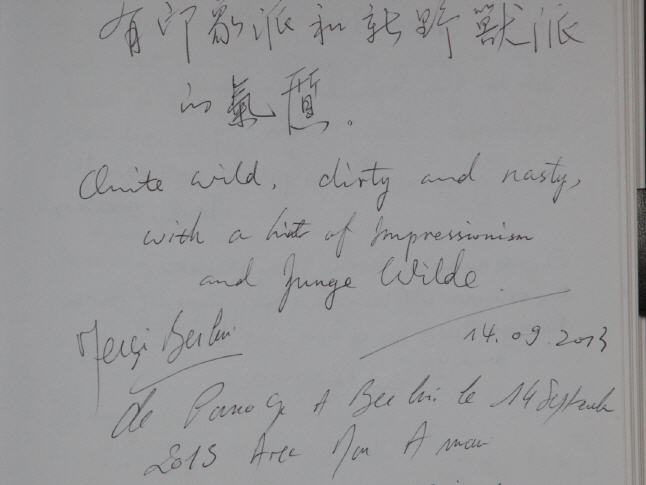 有印象派和新野獸派
的氣質。
Quite wild, dirty and nasty,
with a hint of Impressionism
and Junge Wilde.
14.09.2013
Merçi Berlin
de A Berlin le 14 Septembre
2013 Avec Mon